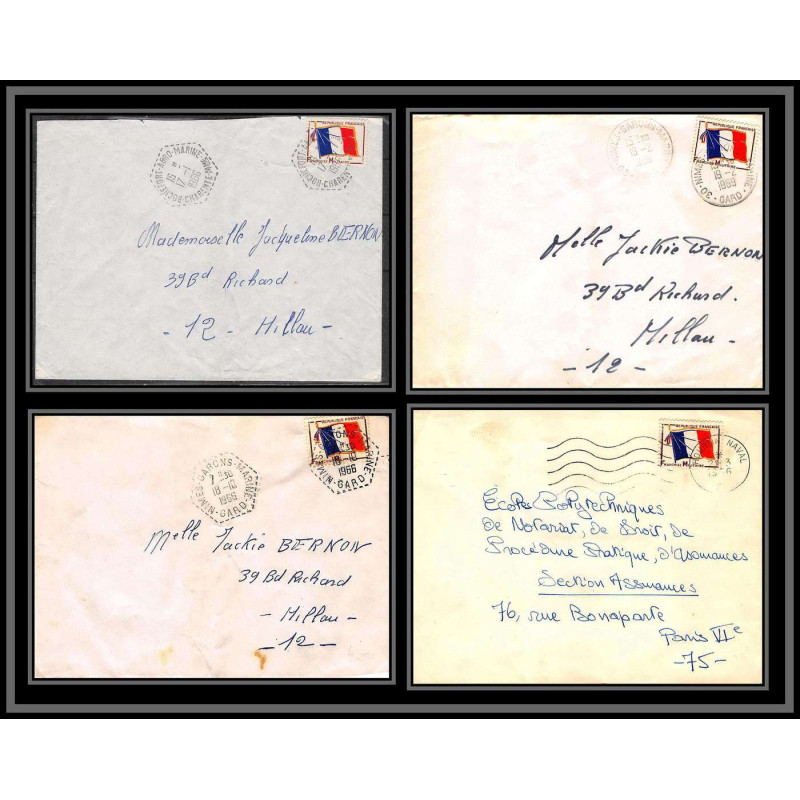 ROCHEFORT-AERO-MARINE
CHARENTE
17
1966
REPUBLIQUE FRANÇAISE
Mademoiselle Jacqueline BERNON
39 Bd Richard
-12- Millau -
NIMES-GARONS-MARINE
30-NIMES
GARD
18-2
1969
REPUBLIQUE FRANÇAISE
Franchise Militaire
Melle Jackie BERNON
39 Bd Richard.
Millau -
-12-
NIMES-GARONS-MARINE
GARD
18-10
1966
18-10
1966
REPUBLIQUE FRANÇAISE
Melle Jackie BERNON
39 Bd Richard
- Millau -
-12-
REPUBLIQUE FRANÇAISE
Franchise Militaire
NAVAL
Ecoles Polytechniques
De Notariat, de Droit, de
Procédure Pratique, d'Assurances
Section Assurances
76, rue Bonaparte
Paris VIe
-75-